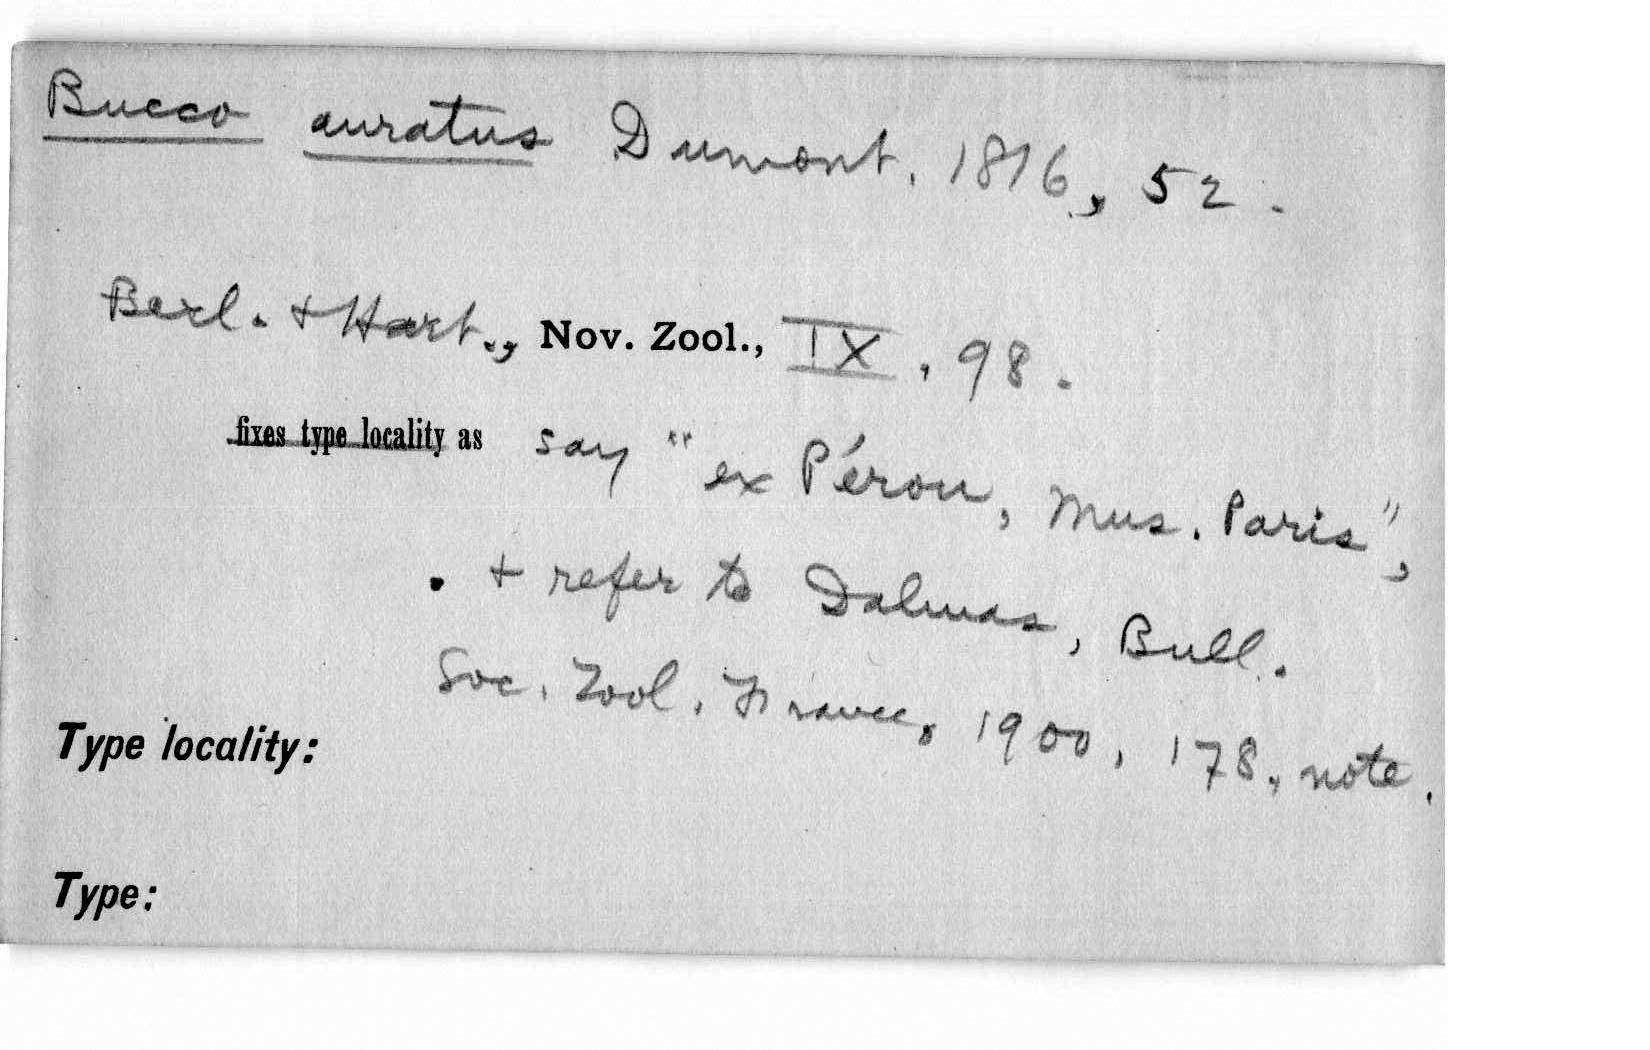 Bucco auratus Dumont, 1816, 52.
Berl. + Hart., Nov. Zool., IX, 98.
fixes type locality as say "ex Péron, Mus. Paris",
+ refer to Dalmas, Bull.
Soc. Zool. France, 1900, 178, note.
Type locality:
Type: